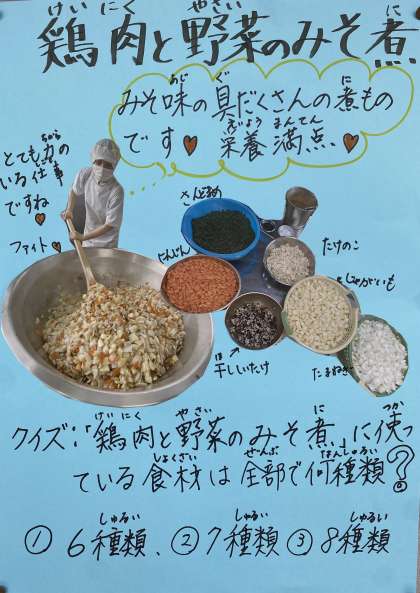 けい にく やさい に
鶏肉と野菜のみそ煮
あじ ぐ に
みそ味の具だくさんの煮もの
えいよう まんてん
です♥ 栄養満点♥
ちから
とても力の
しごと
いる仕事
ですね
ファイト♥
さんどまめ
にんじん
たけのこ
じゃがいも
ほ
干ししいたけ
たまねぎ
けい にく やさい に つか
クイズ:「鶏肉と野菜のみそ煮」に使っ
しょくざい ぜんぶ なんしゅるい
ている食材は全部で何種類?
しゅるい しゅるい しゅるい
① 6種類、② 7種類 ③ 8種類